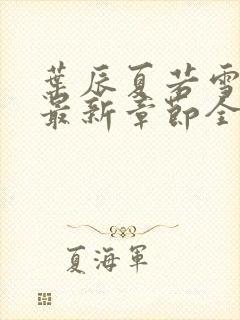 葉辰夏若雪
最新章節全
夏海軍